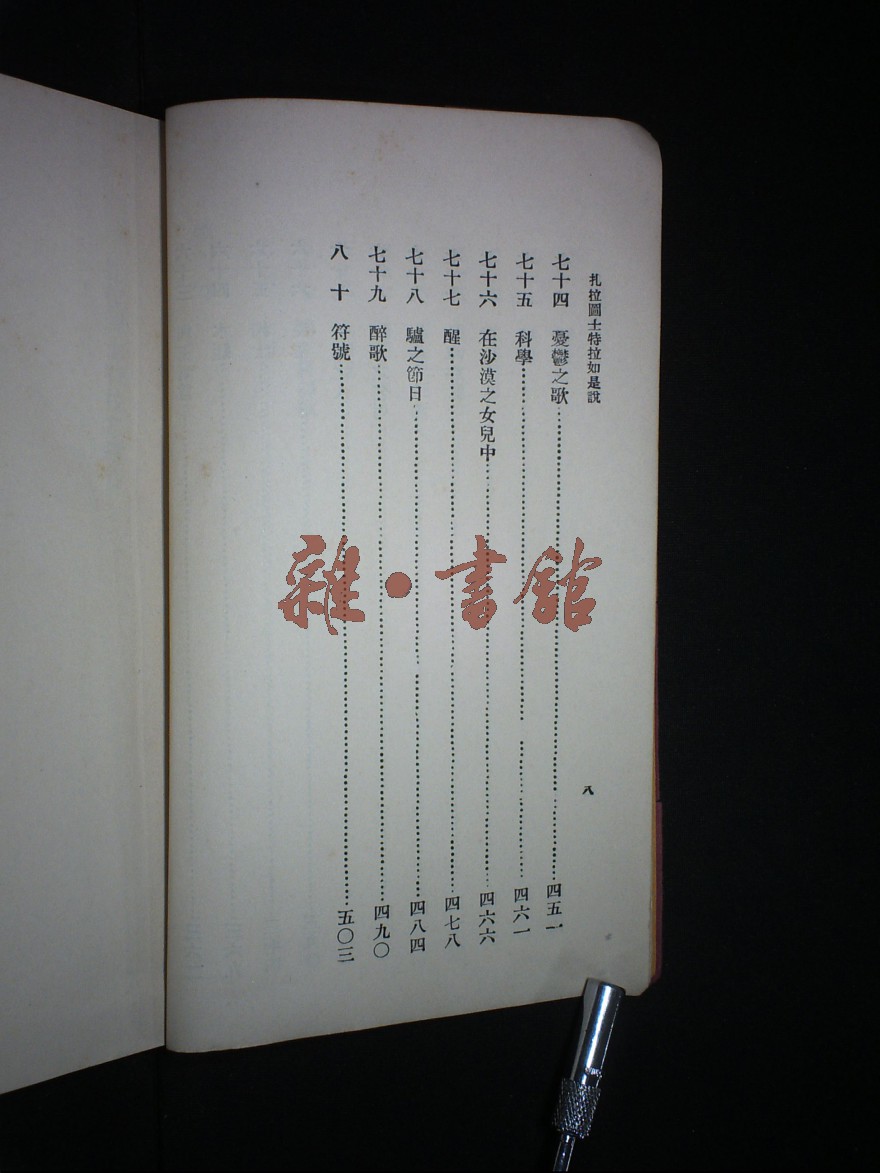 扎拉圖士特拉如是說
八
七十四 憂鬱之歌……四五一
七十五 科學……四六一
七十六 在沙漠之女兒中……四六六
七十七 醒……四七八
七十八 驢之節日……四八四
七十九 醉歌……四九〇
八十 符號……五〇三
雜·書館